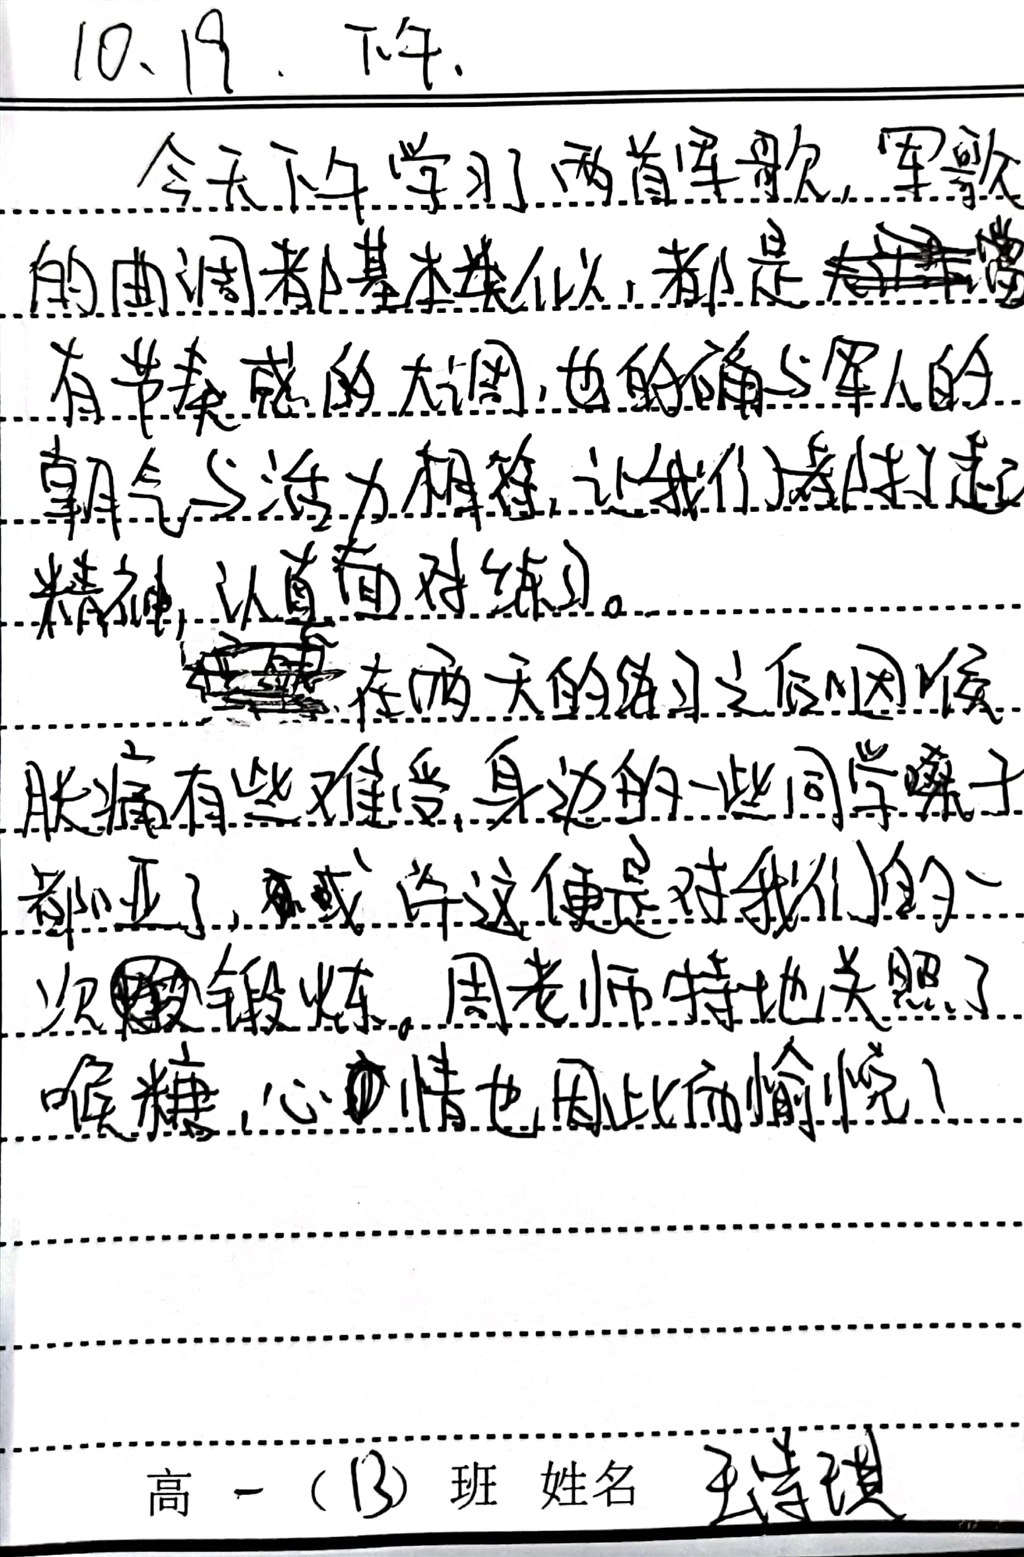 10.19. 下午.
今天下午学习了两首军歌，军歌
的曲调都基本类似，都是富
有节奏感的大调，也的确与军人的
朝气与活力相符，让我们都打起
精神，认真面对练习。
在两天的练习之后因喉
肽痛有些难受，身边的一些同学嗓子
都亚了，或许这便是对我们的一
次锻炼。周老师特地关照了
喉糖，心情也因此而愉悦！
高一（13）班 姓名 王诗琪